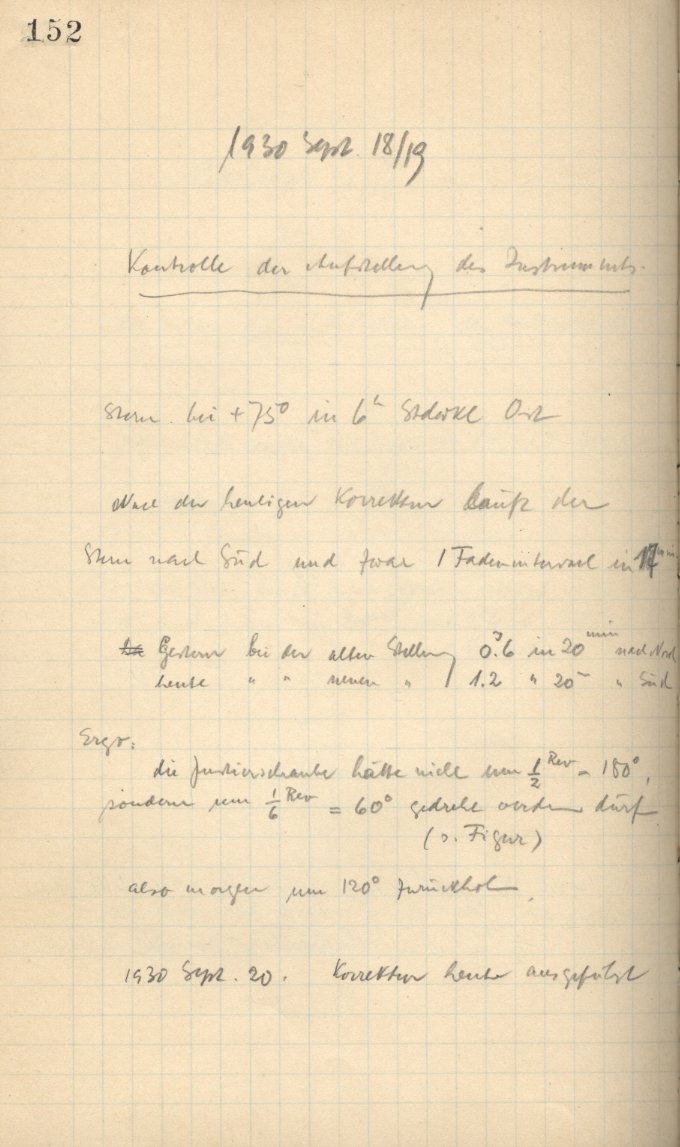 152
1930 Sept. 18/19
Kontrolle der Aufstellung des Instruments.
Stern bei +75° in 6h Stdwkl Ost
Nach der heutigen Korrektur läuft der
Stern nach Süd und zwar 1 Fadenintervall in 17 min
Gestern bei der alten Stellung 0.6 in 20 min nach Nord
heute " " neuen " 1.2 " 20 " Süd
Ergo:
die Justierschraube hätte nicht um 1/2 Rev = 180°,
sondern um 1/6 Rev = 60° gedreht werden dürf
(s. Figur)
also morgen um 120° zurückholen.
1930 Sept. 20. Korrektur heute ausgeführt